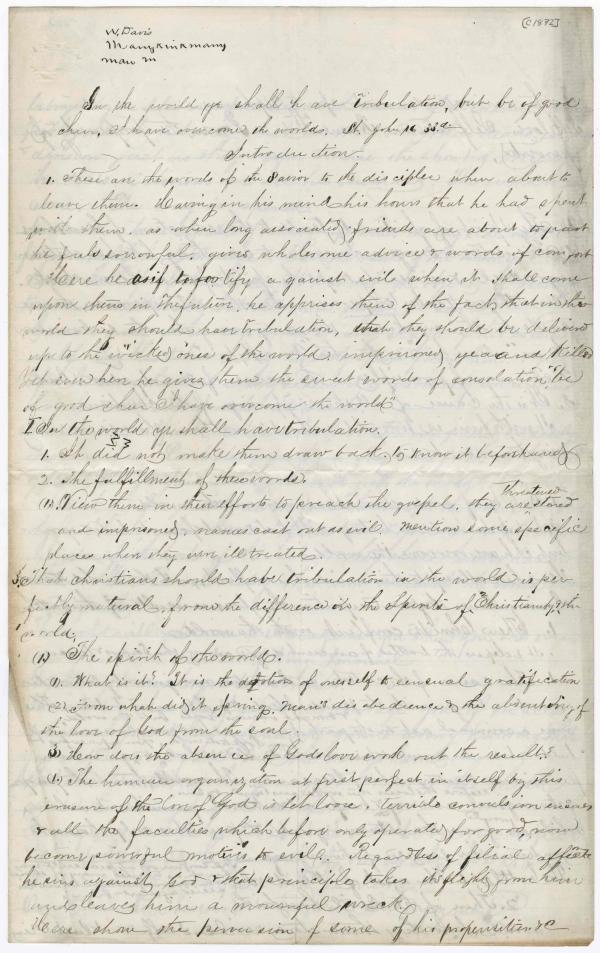 [c1872]
W. Davis
In the world ye shall have tribulation, but be of good
cheer, I have overcome the world. St. John 16 33.d
Introduction.
1. These are the words of the Savior to the disciples when about to
leave them. Having in his mind his hours that he had spent
with them. as when long associated friends are about to part
he feels sorrowful. gives wholesome advice & words of comfort
Here he as if to fortify against evils when it shall come
upon them in the future, he apprises them of the fact, that in the
world they should have tribulation, that they should be delivered
up to the wicked ones of the world, imprisoned, yea and killed
yet even here he gives them the sweet words of consolation "be
of good cheer I have overcome the world"
I. In the world ye shall have tribulation.
1. It did not make them draw back, to know it beforehand
2. The fulfillment of these words.
(1). View them in their efforts to preach the gospel. they are threatened stoned
and imprisoned, names cast out as evil. Mention some specific
places when they were ill treated
3. That christians should have tribulation in the world is per
fectly natural, from the difference in the Spirits of Christianity & the
world.
(1) The spirit of the world.
(1). What is it? It is the devotion of oneself to sensual gratification
(2) From what did it spring. Man's disobedience & the absenting of
the love of God from the soul.
(3) How does the absence of Gods love work out the result?
(1.) The human organization at frist perfect in itself by this
erasure of the love of God is let loose. terrible convulsion ensues
& all the faculties which before only operated for good, now
become powerful motives to evil. Regardless of filial affecti
he sins against God & that principle takes its flight from him
and leaves him a mournful wreck
Here show the perversion of some of his propensities &c